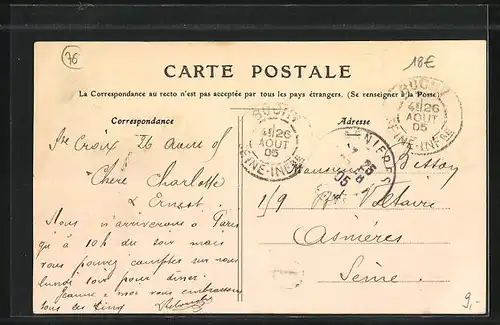 76
18€
CARTE POSTALE
La Correspondance au recto n'est pas acceptée par tous les pays étrangers. (Se renseigner à la Poste)
Correspondance
Adresse
BUCHY
4E 26
AOUT
05
SEINE-INFRE
BUCHY
4E 26
AOUT
05
SEINE-INFRE
Ste Croix 26 Aout 05
Chère Charlotte
& Ernest
Nous n'arriverons à Paris
qu'à 10h du soir mais
vous pouvez compter sur nous
lundi soir pour diner.
Jeanne & moi vous embrassons
tous les cinq
Monsieur Bisson
1/9 Bd Voltaire
Asnières
Seine
9,-